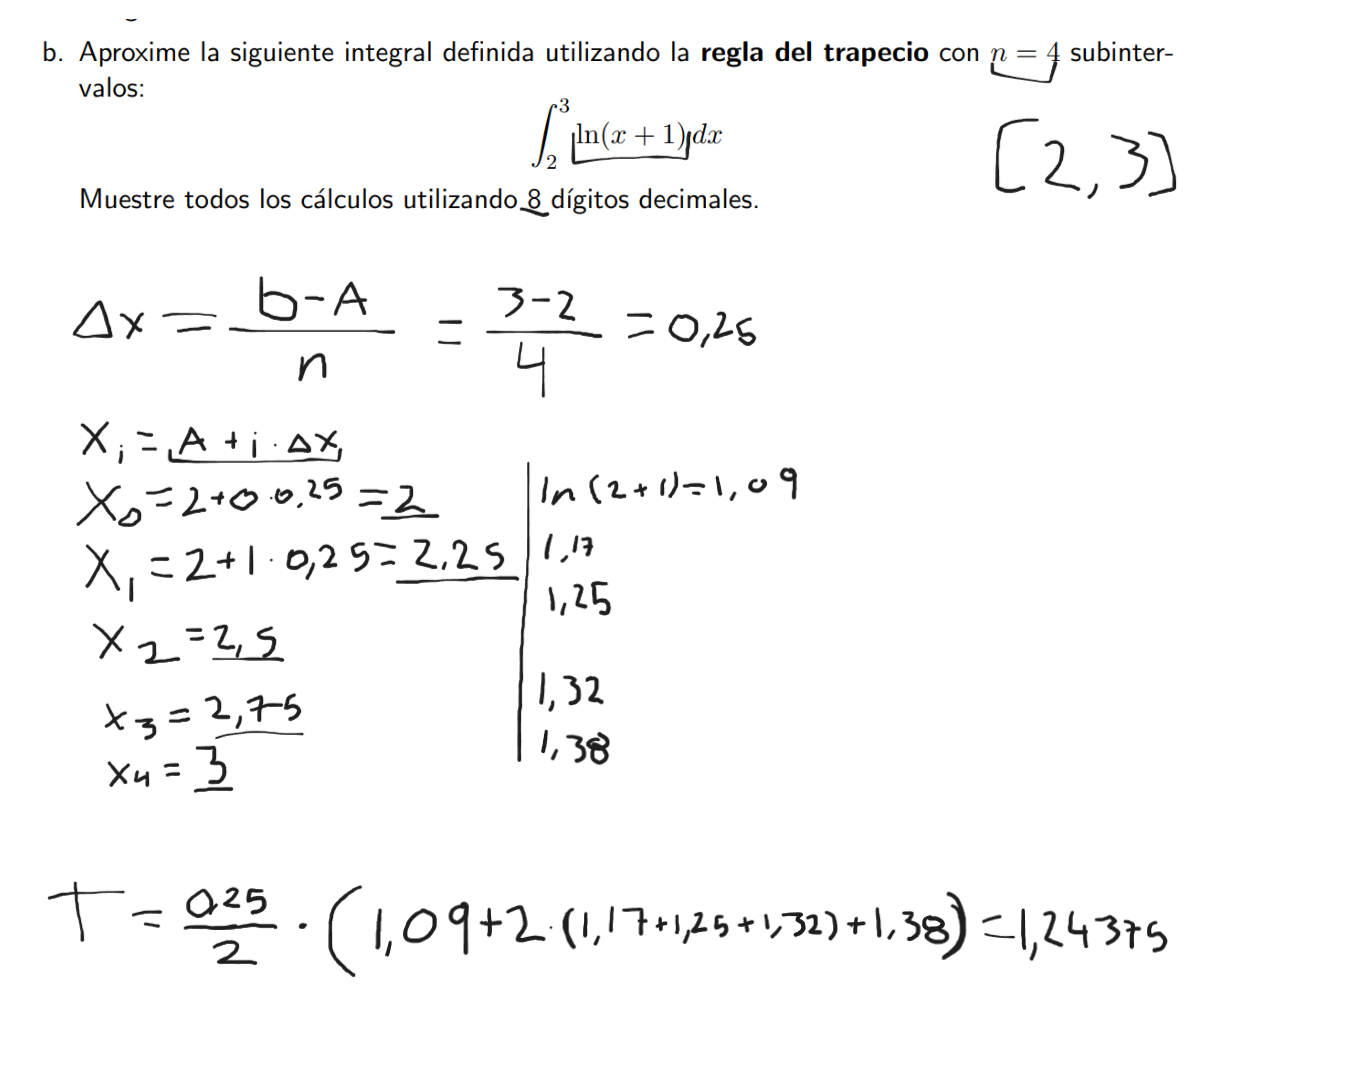 b. Aproxime la siguiente integral definida utilizando la regla del trapecio con n = 4 subinter-
valos:
∫₂³ ln(x + 1)dx
[2,3]
Muestre todos los cálculos utilizando 8 dígitos decimales.
Δx = (b-A)/n = (3-2)/4 = 0,25
Xi = A + i · Δx
X0 = 2+0·0,25 = 2
ln(2+1)=1,09
X1 = 2+1·0,25 = 2,25
1,17
1,25
X2 = 2,5
X3 = 2,75
1,32
X4 = 3
1,38
T = 0.25/2 · (1,09+2·(1,17+1,25+1,32)+1,38) = 1,24375